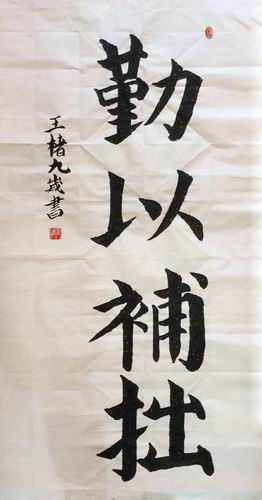 勤以補拙
王楮九歲書